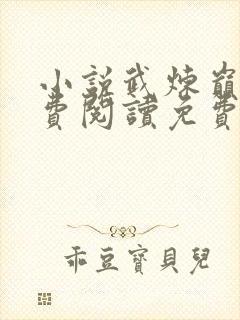 小説武煉巔
費閱讀免費
乖豆寶貝兒